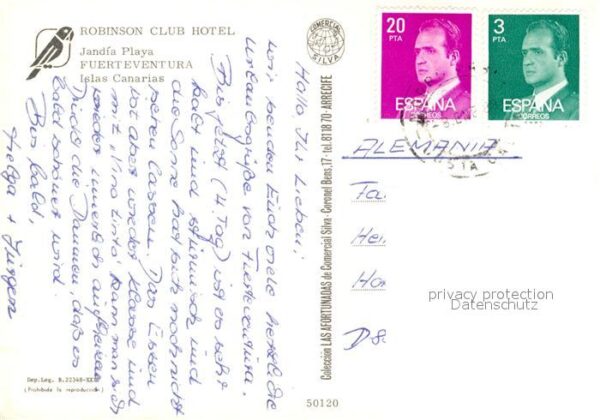 ROBINSON CLUB HOTEL
Jandía Playa
FUERTEVENTURA
Islas Canarias
Hallo Ihr Lieben!
wir senden Euch viele herzliche
Urlaubsgrüße von Fuerteventura.
Bis jetzt (4. Tag) ist es sehr
kalt und stürmisch und
die Sonne hat sich noch nicht
sehen lassen. Das Essen
ist aber wieder klasse und
mit "Vino Tinto" kann man sich
wieder innerlich aufheizen
Drückt die Daumen, daß es
bald schöner wird.
Bis bald,
Helga + Jürgen
Dep. Leg. B. 22348-XX
(Prohibida la reproducción)
COMERCIAL
SILVA
Colección LAS AFORTUNADAS de Comercial Silva - Coronel Bens, 17 - tel. 81 18 70 - ARRECIFE
50120
20
PTA
ESPAÑA
CORREOS
3
PTA
ESPAÑA
CORREOS
ALEMANIA
Fa
Hei
Ho
D8
privacy protection
Datenschutz